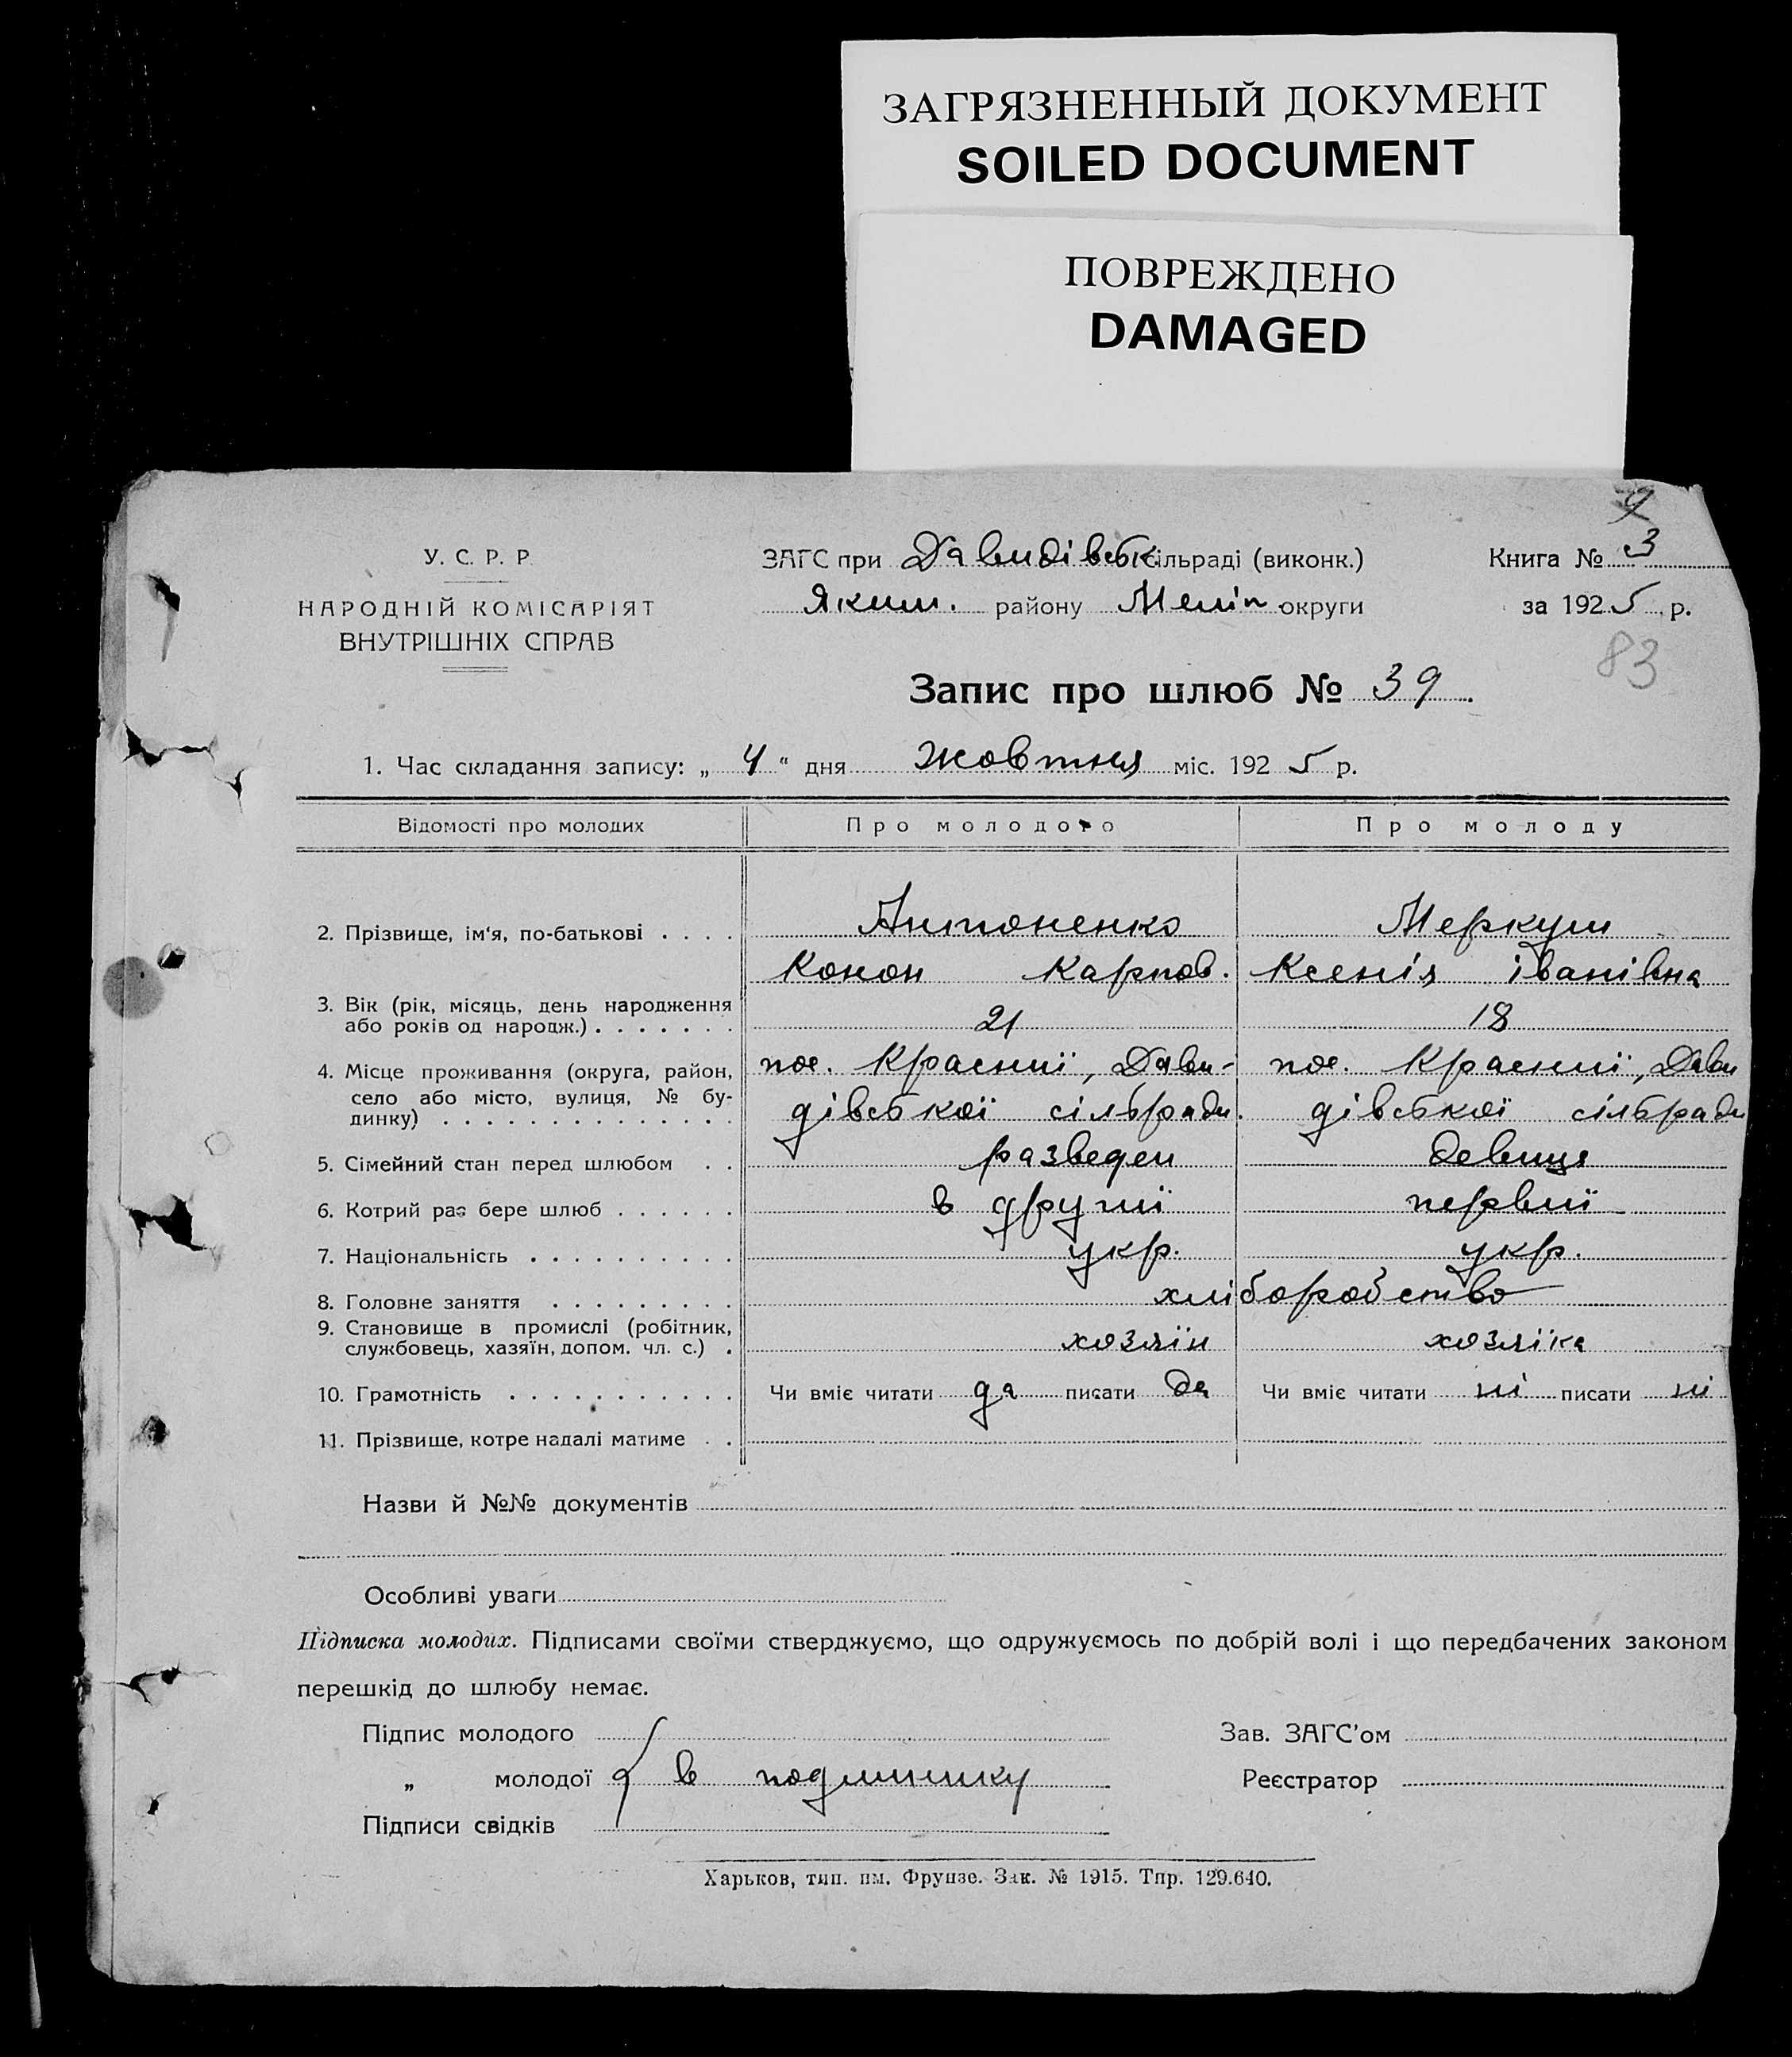 ЗАГРЯЗНЕННЫЙ ДОКУМЕНТ
SOILED DOCUMENT
ПОВРЕЖДЕНО
DAMAGED
9
У. С. Р. Р
НАРОДНІЙ КОМІСАРІЯТ
ВНУТРІШНІХ СПРАВ
ЗАГС при Давидівськ сільраді (виконк.)
Яким. району Меліт. округи
Книга № 3
за 1925 р.
83
Запис про шлюб № 39.
1. Час складання запису: „ 4 " дня Жовтня міс. 1925 р.
Відомості про молодих Про молодого Про молоду
2. Прізвище, ім'я, по-батькові . . . . Антоненко Меркуш
Конон Карпов. Ксенія іванівна
3. Вік (рік, місяць, день народження
або років од народж.) . . . . . . . 21 18
4. Місце проживання (округа, район, пос. Красний, Дави- пос. Красний, Дави
село або місто, вулиця, № бу-
динку) . . . . . . . . . . . . . . дівської сільради. дівської сільради
5. Сімейний стан перед шлюбом . . разведен девиця
6. Котрий раз бере шлюб . . . . . . в другий первий
7. Національність . . . . . . . . . . укр. укр.
8. Головне заняття . . . . . . . . . хліборобство
9. Становище в промислі (робітник,
службовець, хазяїн, допом. чл. с.) . хозяїн хозяїка
10. Грамотність . . . . . . . . . . . Чи вміє читати да писати да Чи вміє читати ні писати ні
11. Прізвище, котре надалі матиме . .
Назви й №№ документів
Особливі уваги
Підписка молодих. Підписами своїми стверджуємо, що одружуємось по добрій волі і що передбачених законом
перешкід до шлюбу немає.
Підпис молодого Зав. ЗАГС'ом
„ молодої в подлиннику Реєстратор
Підписи свідків
Харьков, тип. им. Фрунзе. Зак. № 1915. Тир. 129.640.